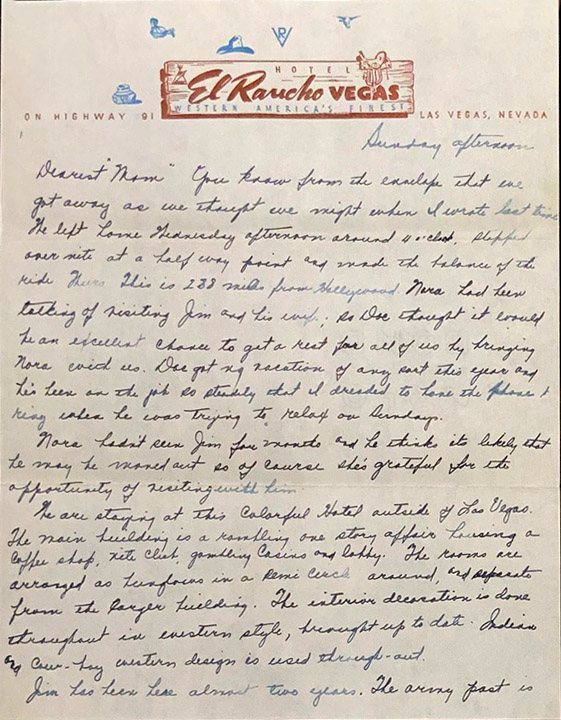 VR
HOTEL
El Rancho VEGAS
WESTERN AMERICA'S FINEST
ON HIGHWAY 91
LAS VEGAS, NEVADA
Sunday afternoon
Dearest "Mom" You know from the envelope that we
got away as we thought we might when I wrote last time
We left home Wednesday afternoon around 4 o'clock, stopped
over nite at a half way point and made the balance of the
ride Thurs This is 288 miles from Hollywood. Nora had been
talking of visiting Jim and his wife, so Doc thought it would
be an excellent chance to get a rest for all of us by bringing
Nora with us. Doc got no vacation of any sort this year and
he's been on the job so steadily that I dreaded to have the phone
ring when he was trying to relax on Sundays.
Nora hadn't seen Jim for months and he thinks its likely that
he may be moved out so of course she's grateful for the
opportunity of visiting with him.
We are staying at this Colorful Hotel outside of Las Vegas.
The main building is a rambling one story affair housing a
Coffee shop, nite Club, gambling Casino and lobby. The rooms are
arranged as bungalows in a semi circle around, and separate
from the larger building. The interior decoration is done
throughout in western style, brought up to date. Indian
and Cow-boy western design is used through-out.
Jim has been here almost two years. The army post is